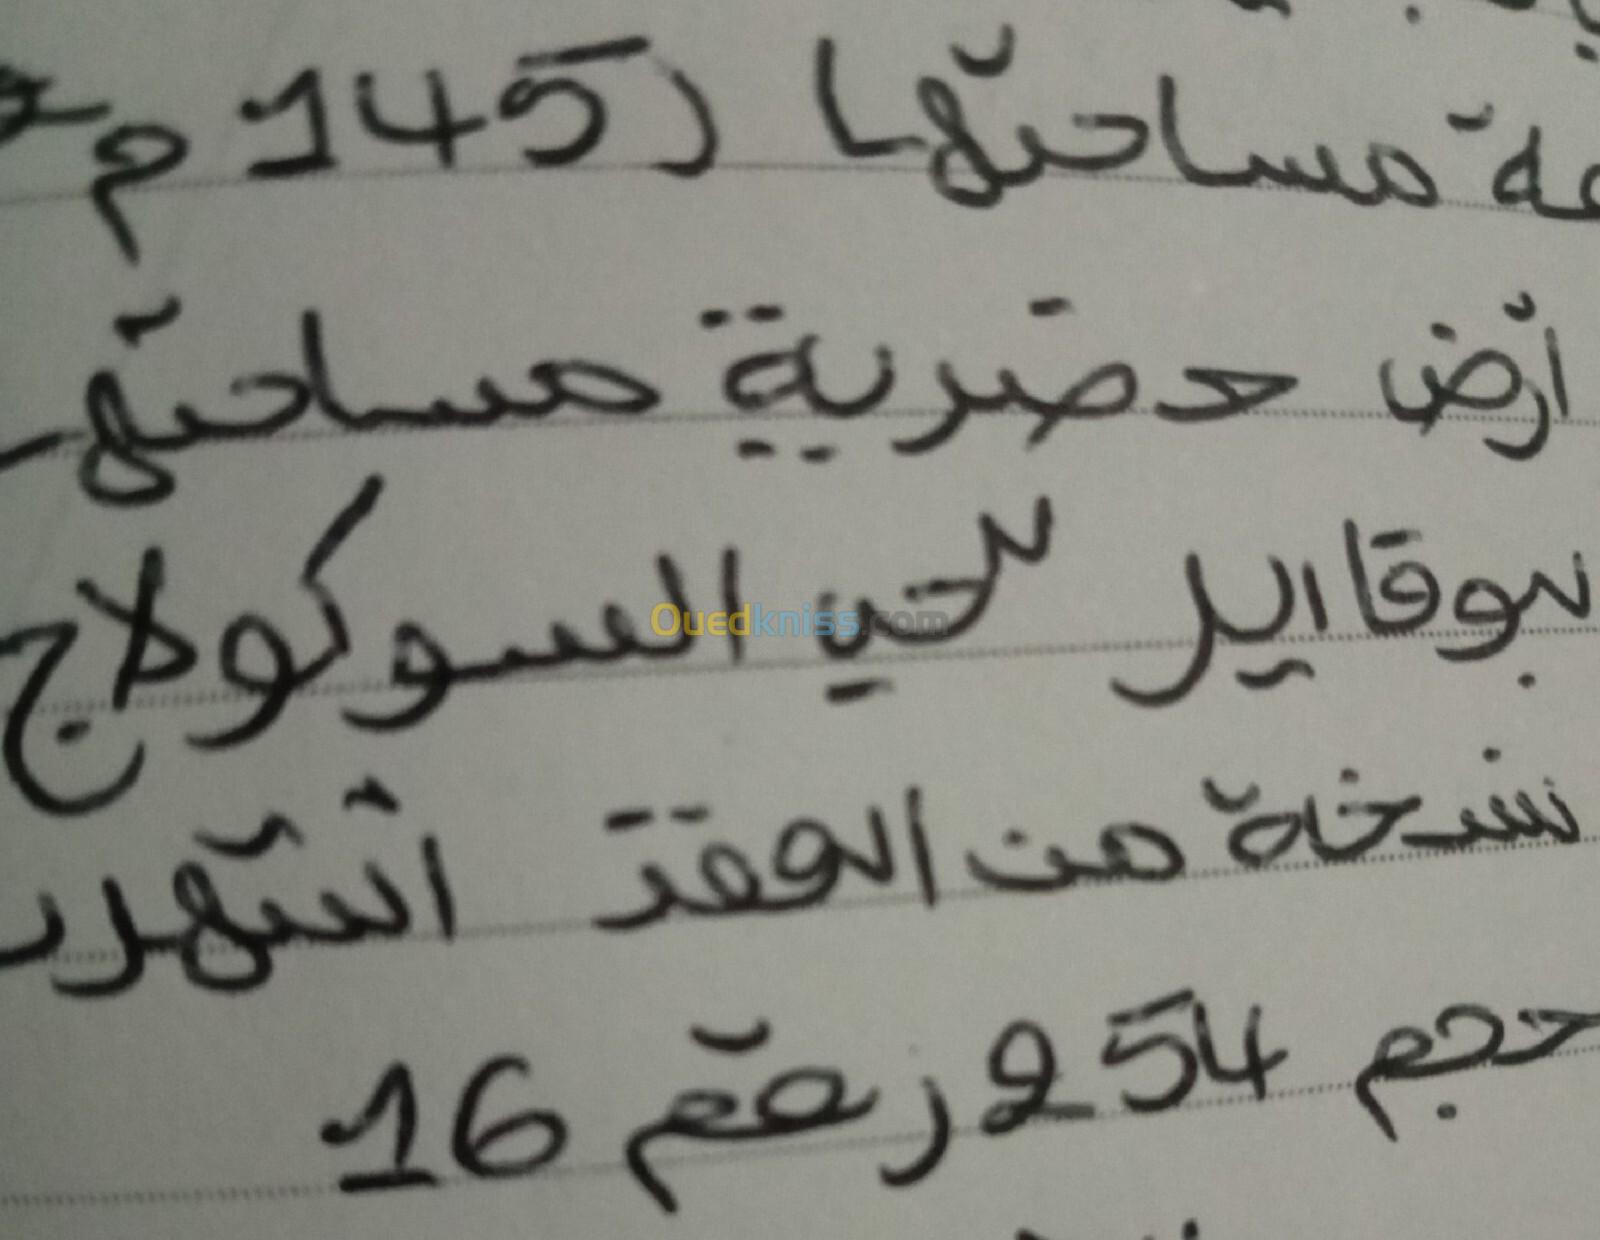 مساحتها (145 م
أرض حضرية مساحتها
بوقايل حي السوكولاج
نسخة من العقد اشهر
حجم 254 رقم 16
Ouedkniss.com